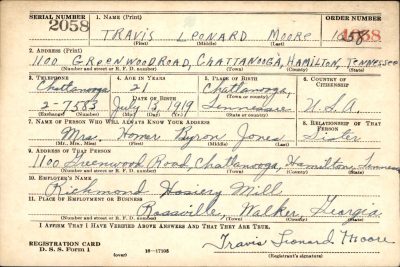 SERIAL NUMBER 1. NAME (Print) ORDER NUMBER
2058 TRAVIS LEONARD MOORE
(First) (Middle) (Last)
2. ADDRESS (Print)
1100 GREENWOOD ROAD, CHATTANOOGA, HAMILTON, TENNESSEE
(Number and street or R. F. D. number) (Town) (County) (State)
3. TELEPHONE 4. AGE IN YEARS 5. PLACE OF BIRTH 6. COUNTRY OF CITIZENSHIP
Chattanooga 21 Chattanooga,
(Town or county)
DATE OF BIRTH
2-7583 July 13, 1919 Tennessee U.S.A.
(Exchange) (Number) (Mo.) (Day) (Yr.) (State or country)
7. NAME OF PERSON WHO WILL ALWAYS KNOW YOUR ADDRESS 8. RELATIONSHIP OF THAT PERSON
Mrs. Homer Byron Jones Sister
(Mr., Mrs., Miss) (First) (Middle) (Last)
9. ADDRESS OF THAT PERSON
1100 Greenwood Road, Chattanooga, Hamilton, Tennessee
(Number and street or R. F. D. number) (Town) (County) (State)
10. EMPLOYER'S NAME
Richmond Hosiery Mill
11. PLACE OF EMPLOYMENT OR BUSINESS
Rossville, Walker, Georgia
(Number and street or R. F. D. number) (Town) (County) (State)
I AFFIRM THAT I HAVE VERIFIED ABOVE ANSWERS AND THAT THEY ARE TRUE.
REGISTRATION CARD
D. S. S. Form 1 (over) 16—17105 Travis Leonard Moore
(Registrant's signature)